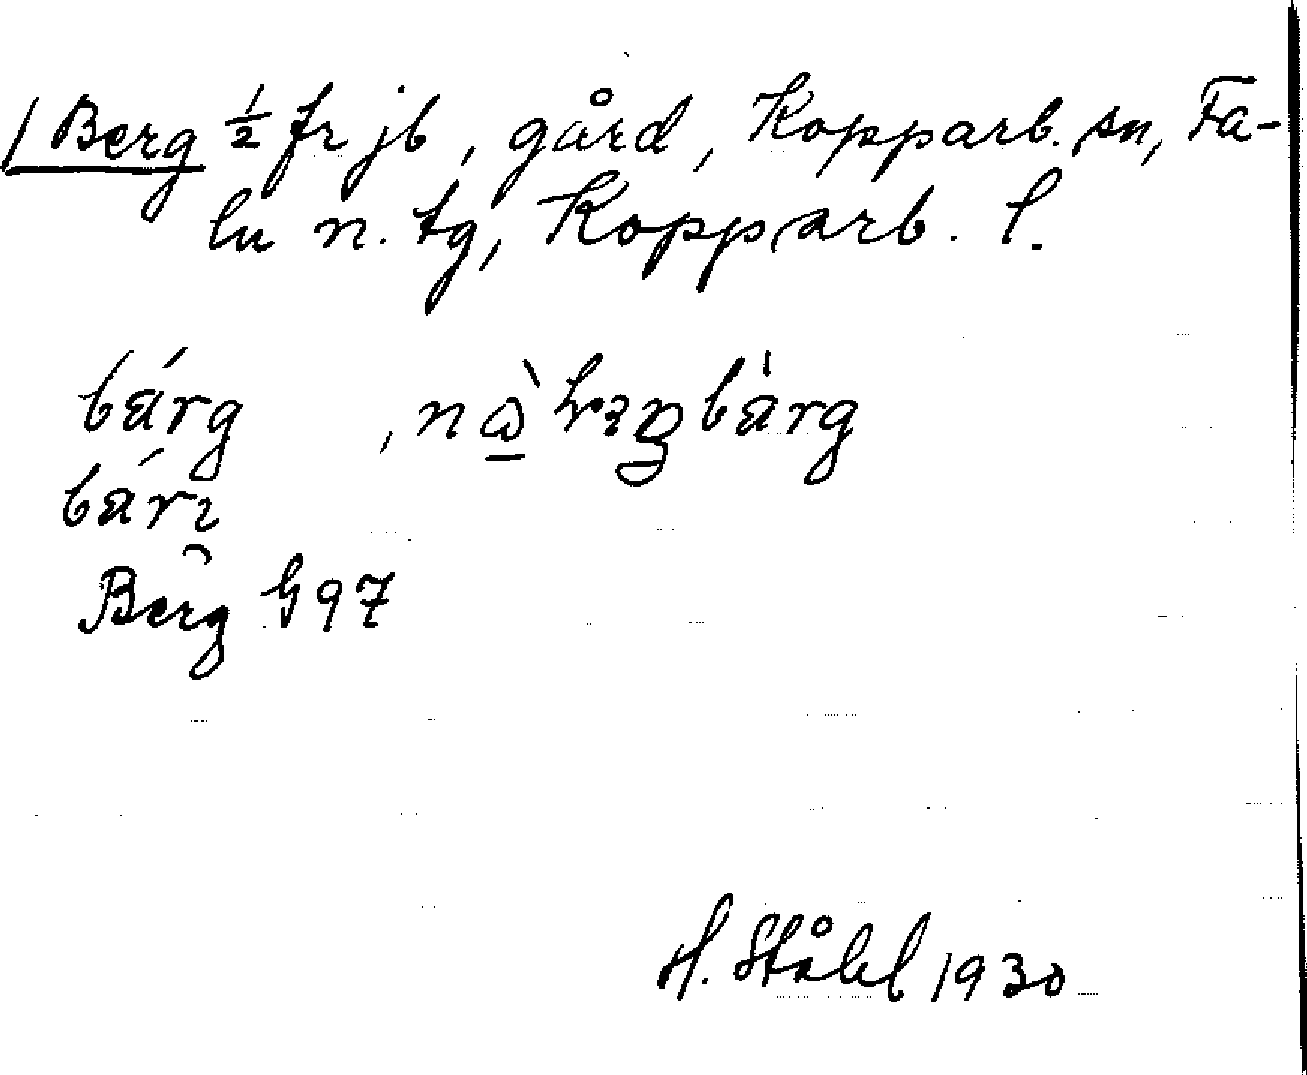 1 Berg ½ fr jb, gård, Kopparb. sn, Fa-
lu n. tg, Kopparb. l.
bárg
bárı
Berg G 97
H. Ståhl 1930